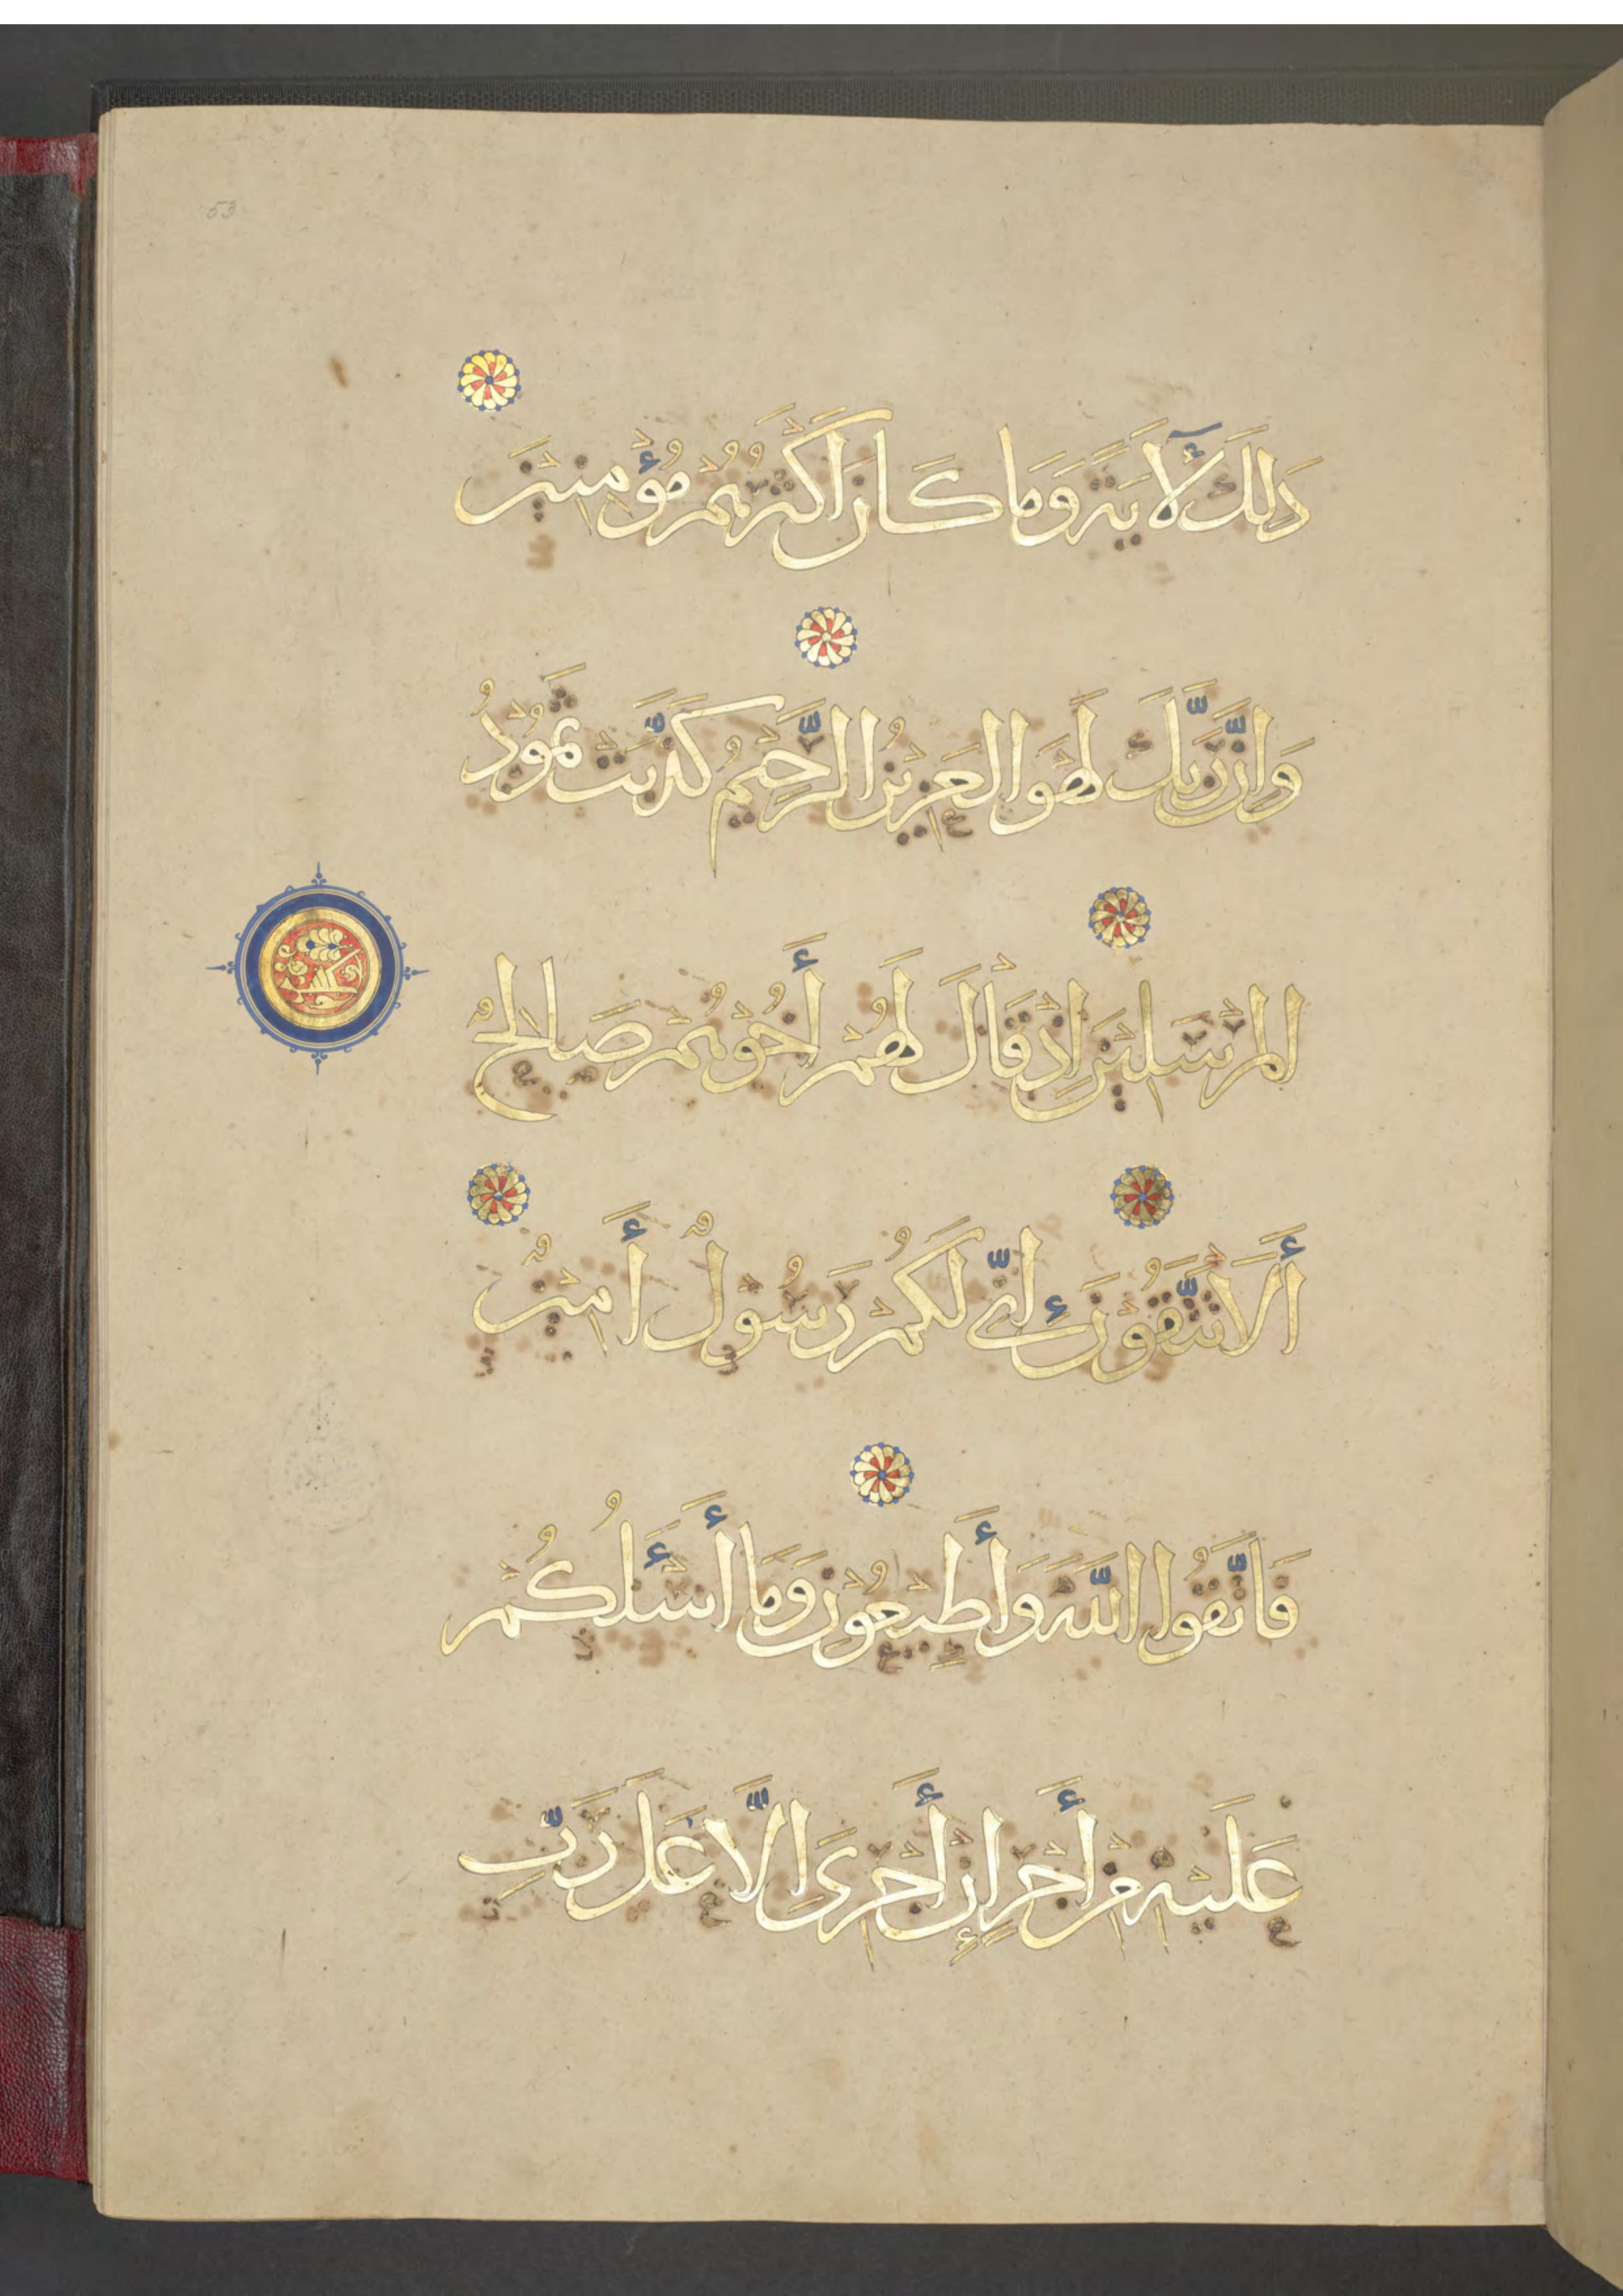 53
ذَلِكَ لَآيَةً وَمَا كَانَ أَكْثَرُهُمْ مُؤْمِنِيْنَ
وَاِنَّ رَبَّكَ لَهْوَ الْعَزِيْزُ الرَّحِيْمُ كَذَّبَتْ ثَمُوْدُ
الْمُرْسَلِيْنَ اِذْ قَالَ لَهُمْ أَخُوْهُمْ صَالِحٌ
أَلَا تَتَّقُوْنَ اِنِّي لَكُمْ رَسُوْلٌ أَمِيْنٌ
فَاتَّقُوا اللَّهَ وَأَطِيْعُوْنِ وَمَا أَسْـَٔلُكُمْ
عَلَيْهِ مِنْ أَجْرٍ إِنْ أَجْرِىَ اِلَّا عَلَى رَبِّ